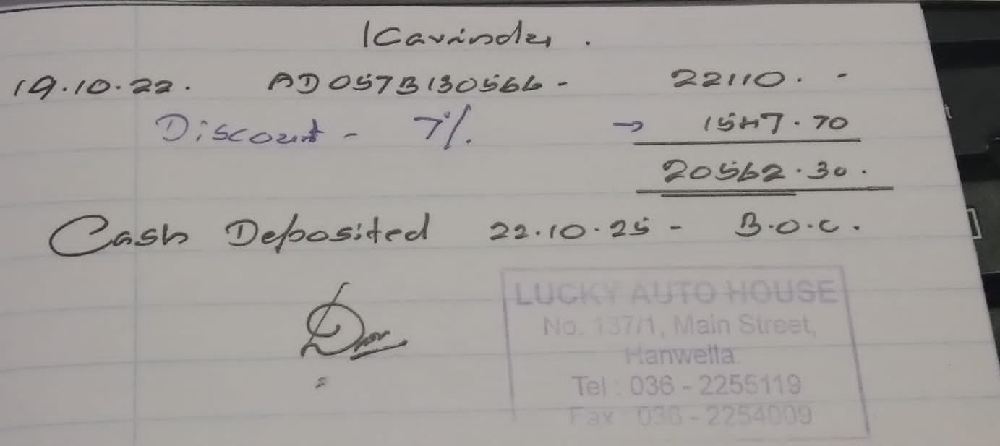 Kavinder.
19.10.22. AD057B130566- 22110.-
Discount - 7%. → 1547.70
20562.30.
Cash Deposited 22.10.25 - B.O.C.
LUCKY AUTO HOUSE
No. 137/1, Main Street,
Hanwella
Tel : 036 - 2255119
Fax : 036 - 2254009